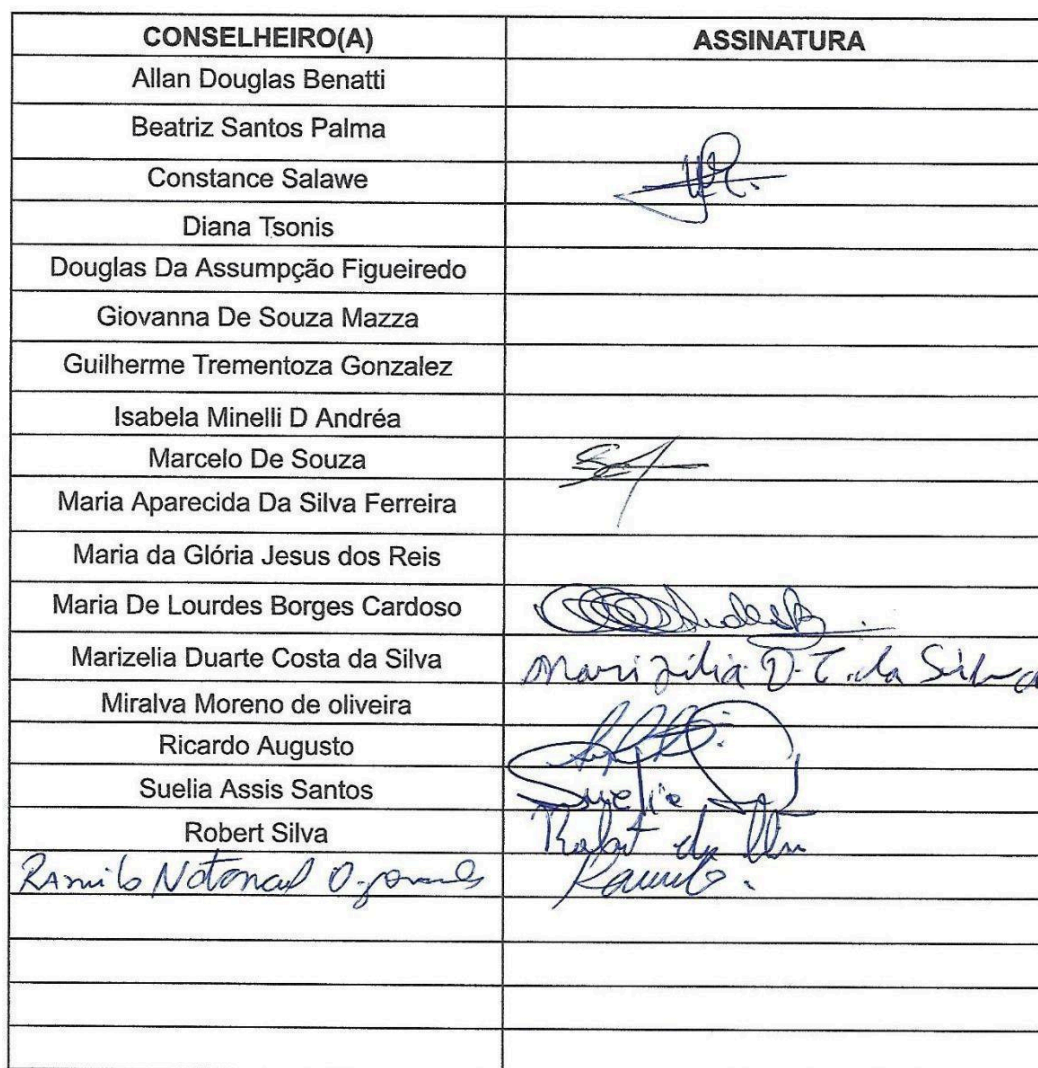 CONSELHEIRO(A) ASSINATURA
Allan Douglas Benatti
Beatriz Santos Palma
Constance Salawe
Diana Tsonis
Douglas Da Assumpção Figueiredo
Giovanna De Souza Mazza
Guilherme Trementoza Gonzalez
Isabela Minelli D Andréa
Marcelo De Souza
Maria Aparecida Da Silva Ferreira
Maria da Glória Jesus dos Reis
Maria De Lourdes Borges Cardoso
Marizelia Duarte Costa da Silva Marizilia D. C. da Silva
Miralva Moreno de oliveira
Ricardo Augusto
Suelia Assis Santos Suelia
Robert Silva Robert da
Ramilo Ramilo.